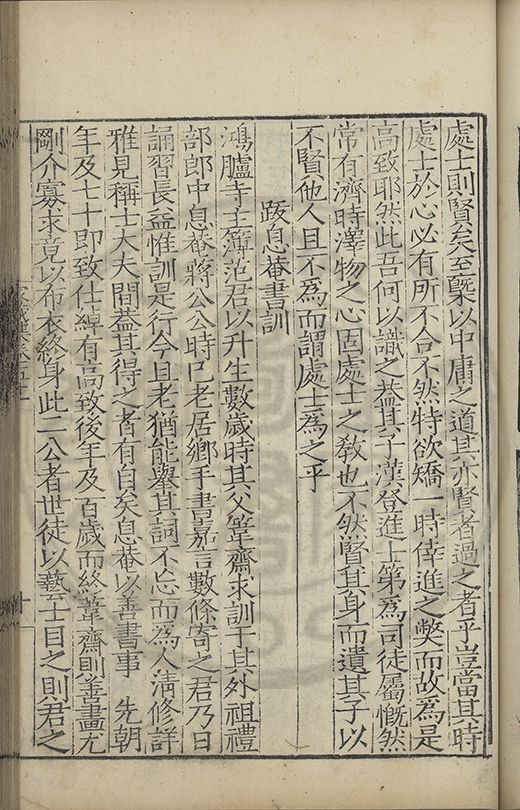 處士則賢矣至槩以中庸之道其亦賢者過之者乎豈當其時
處士於心必有所不合不然特欲矯一時倖進之獘而故為是
高致耶然此吾何以識之葢其子漢登進士第為司徒屬慨然
常有濟時澤物之心固處士之教也不然賢其身而遺其子以
不賢他人且不為而謂處士為之乎
跋息菴書訓
鴻臚寺主簿范君以升生數歲時其父葦齋求訓于其外祖禮
部郎中息菴蔣公公時已老居鄉手書嘉言數條寄之君乃日
誦習長益惟訓是行今日老猶能舉其詞不忘而為人淸修詳
雅見稱士大夫間葢其得之者有自矣息菴以善書事 先朝
年及七十即致仕綽有高致後年及百歲而終葦齋則善畫尤
剛介寡求竟以布衣終身此二公者世徒以藝士目之則君之